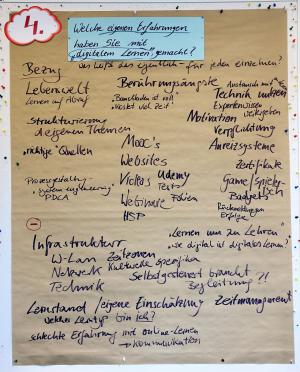 4.
Welche eigenen Erfahrungen
haben Sie mit
"digitalem Lernen" gemacht?
Was heißt das eigentlich - für jeden einzelnen?
Bezug
Lebenswelt
Lernen auf Abruf
Berührungsängste
"Bandbreiten ist voll"
"kostet viel Zeit"
Austausch mit
Technik
Expertenwissen
Motivation
Verpflichtung
Anreizsysteme
Strukturierung
eigenen Themen
"richtige" Quellen
Mooc's
Websites
Videos Udemy
Texte
Webinare Folien
HSP
Zertifikate
Game/Spielerisch
Badgets
Rückmeldungen
Erfolge
Prozessgestaltung
System Engineering
PDCA
"Lernen um zu Lehren"
"wie digital ist digitales Lernen"
Infrastruktur
W-Lan Zeitzonen
Netzwerk Kulturelle Spezifika
Technik
Selbstgesteuert braucht
Begleitung?!
Lernstand/eigene Einschätzung
Zeitmanagement
welcher Lerntyp bin ich?
schlechte Erfahrung mit online-Lernen
→ Kommunikation